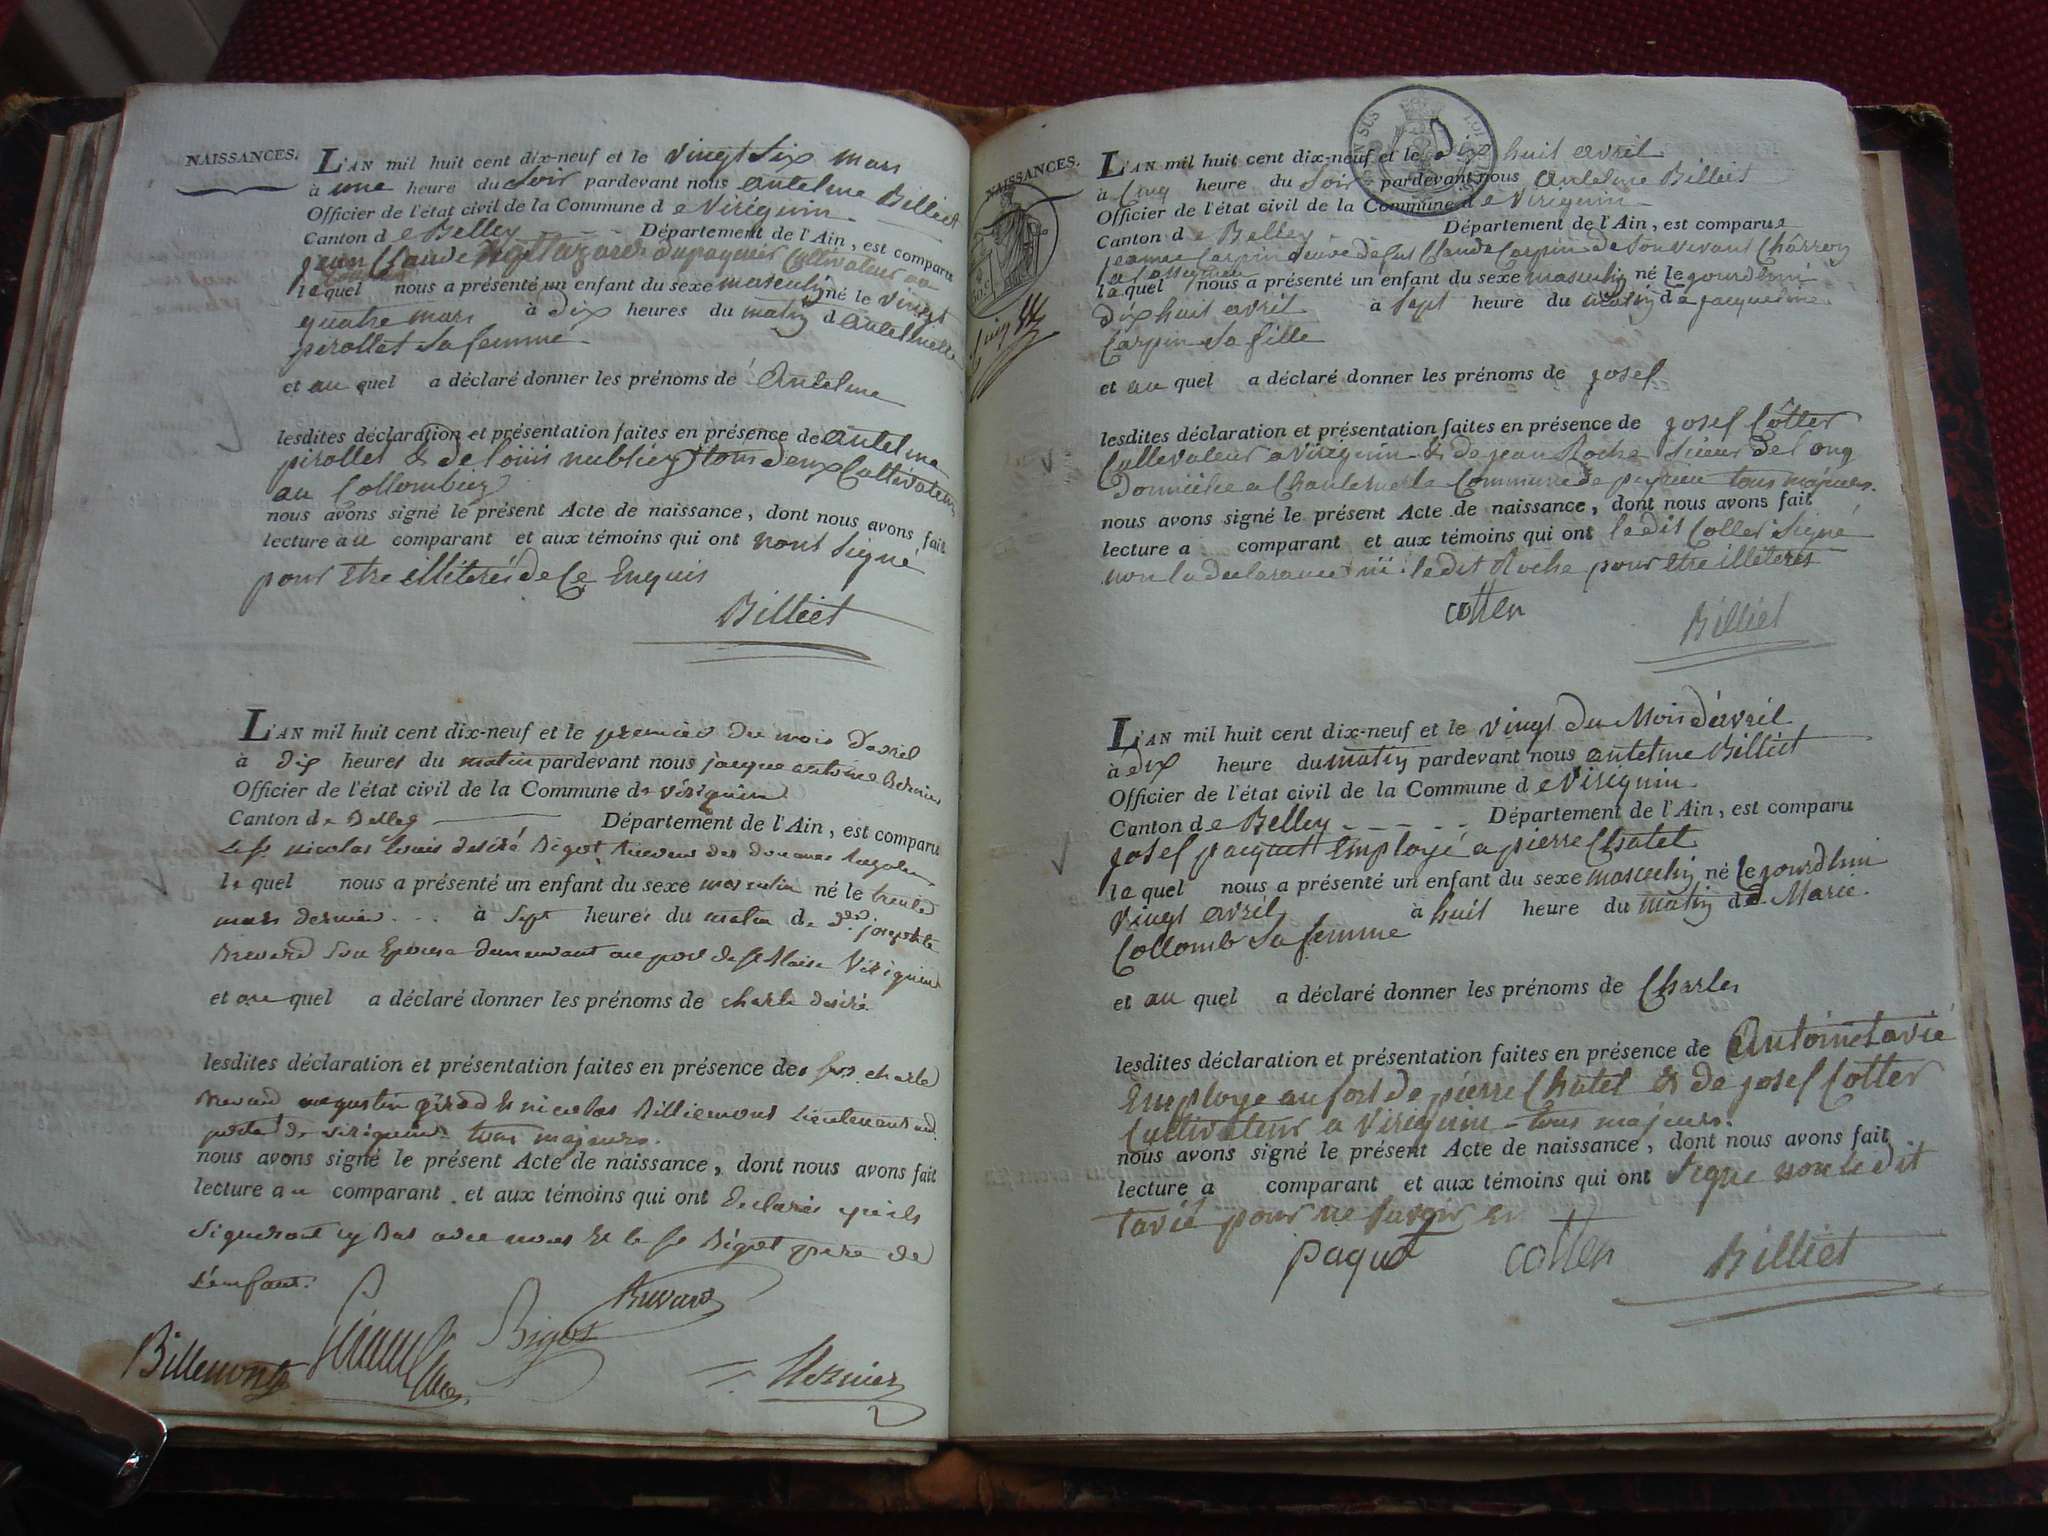 NAISSANCES.
L'AN mil huit cent dix-neuf et le vingt six mars
à une heure du Soir pardevant nous antelme Billiet
Officier de l'état civil de la Commune de Virignin
Canton de Belley Département de l'Ain, est comparu
jean Claude cultivateur au
lequel nous a présenté un enfant du sexe masculin né le vingt
quatre mars à dix heures du matin d antelmette
pirollet sa femme
et au quel a déclaré donner les prénoms de Antelme
lesdites déclaration et présentation faites en présence de antelme
pirollet & de louis tous deux Cultivateurs
au Collombier
nous avons signé le présent Acte de naissance, dont nous avons fait
lecture au comparant et aux témoins qui ont nont signé
pour être elliterés de ce Enquis
Billiet
L'AN mil huit cent dix-neuf et le premier du mois d'avril
à dix heures du matin pardevant nous jacque antoine Bernier
Officier de l'état civil de la Commune de virignin
Canton de Belley Département de l'Ain, est comparu
Le Sr. nicolas louis desiré Bigot, Receveur des douanes
lequel nous a présenté un enfant du sexe masculin né le trente
mars dernier à sept heures du matin de de. josephte
Brevard son Epouse demeurant au port de Virignin
et au quel a déclaré donner les prénoms de charle désiré
lesdites déclaration et présentation faites en présence des srs. charle
Brevard augustin girod & nicolas Billiemont Lieutenant
de virignin tous majeurs.
nous avons signé le présent Acte de naissance, dont nous avons fait
lecture au comparant et aux témoins qui ont Declarés qu'ils
signeront cy Bas avec nous et le Sr Bigot pere de
L'enfant.
Bigot Brevard
Billemont Bernier
NAISSANCES.
L'AN mil huit cent dix-neuf et le dix huit avril
à Cinq heure du Soir pardevant nous Antelme Billiet
Officier de l'état civil de la Commune de Virignin
Canton de Belley Département de l'Ain, est comparue
jeanne Carpin veuve de fut Claude Carpin de son vivant Charron
laquel nous a présenté un enfant du sexe masculin né le jourdhui
dix huit avril à Sept heure du matin de jacqueline
Carpin Sa fille
et au quel a déclaré donner les prénoms de josef
lesdites déclaration et présentation faites en présence de josef Cotter
Cullevateur a Virignin & de jean Roche Sieur de long
domicilié a Chantemerle Commune de peyrieu tous majeurs.
nous avons signé le présent Acte de naissance, dont nous avons fait
lecture a comparant et aux témoins qui ont ledit Cotter Signé
non la declarante ni ledit Roche pour être illeterés
cotter Billiet
L'AN mil huit cent dix-neuf et le vingt du Mois d'avril
à dix heure du matin pardevant nous antelme Billiet
Officier de l'état civil de la Commune de Virignin
Canton de Belley Département de l'Ain, est comparu
josef paquet Employé a pierre Chatel
lequel nous a présenté un enfant du sexe masculin né le jourdhui
vingt avril à huit heure du matin de Marie
Collomb Sa femme
et au quel a déclaré donner les prénoms de Charles
lesdites déclaration et présentation faites en présence de Antoine tavié
Employe au fort de pierre Chatel & de josef Cotter
Cultivateur a Virignin tous majeurs.
nous avons signé le présent Acte de naissance, dont nous avons fait
lecture a comparant et aux témoins qui ont Signe non ledit
tavié pour ne savoir
paquet cotter Billiet